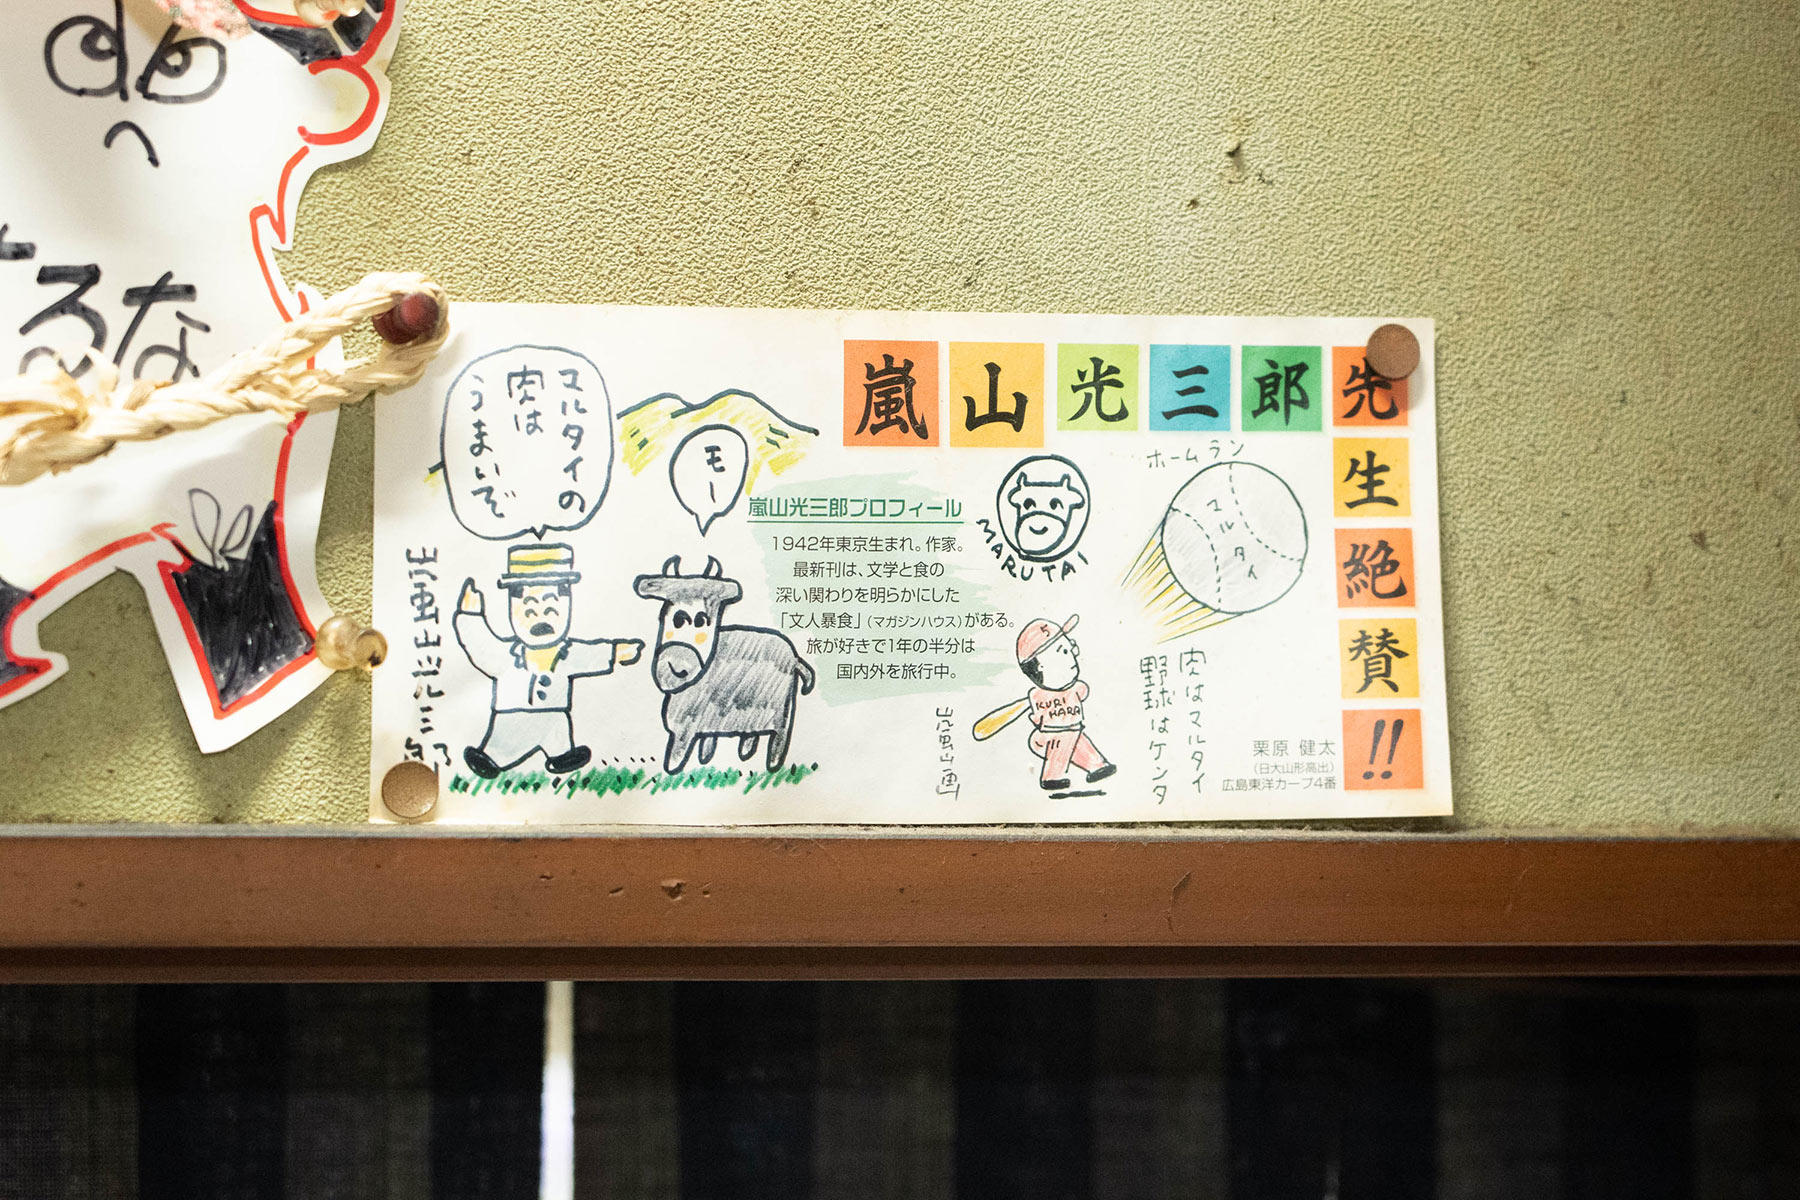 るな
嵐山光三郎先生絶賛!!
マルタイの
肉は
うまいぞ
モー
嵐山光三郎プロフィール
1942年東京生まれ。作家。
最新刊は、文学と食の
深い関わりを明らかにした
「文人暴食」(マガジンハウス)がある。
旅が好きで1年の半分は
国内外を旅行中。
MARUTAI
ホームラン
マルタイ
肉はマルタイ
野球はケンタ
5
KURI
HARA
嵐山画
栗原 健太
(日大山形高出)
広島東洋カープ4番